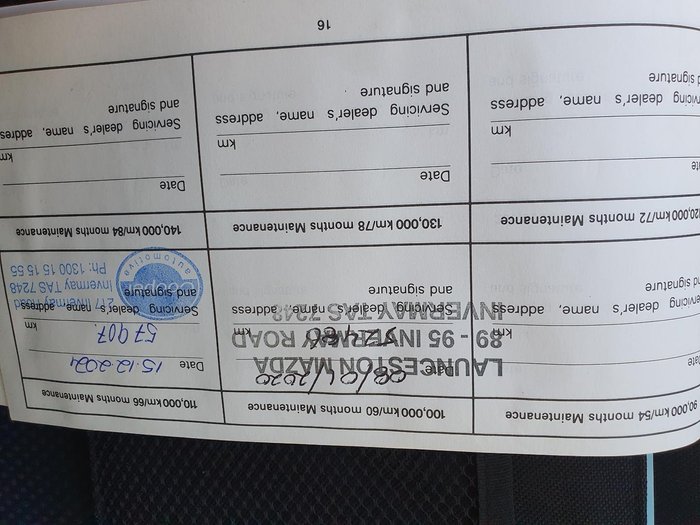 90,000 km/54 months Maintenance
km
Servicing dealer's name, address
and signature
100,000 km/60 months Maintenance
Date 08/01/2020
LAUNCESTON MAZDA
89 - 95 INVERMAY ROAD
INVERMAY TAS 7248
km
Servicing dealer's name, address
and signature
110,000 km/66 months Maintenance
Date 15.12.
57907.
km
Servicing dealer's name, address
and signature
automotive
Invermay Road
Invermay TAS 7248
Ph: 1300 15 15 55
120,000 km/72 months Maintenance
Date
km
Servicing dealer's name, address
and signature
130,000 km/78 months Maintenance
Date
km
Servicing dealer's name, address
and signature
140,000 km/84 months Maintenance
Date
km
Servicing dealer's name, address
and signature
16